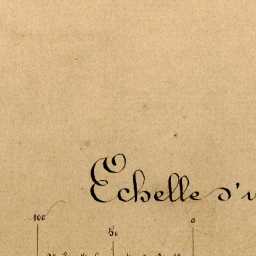 Echelle d'u
100 50 0